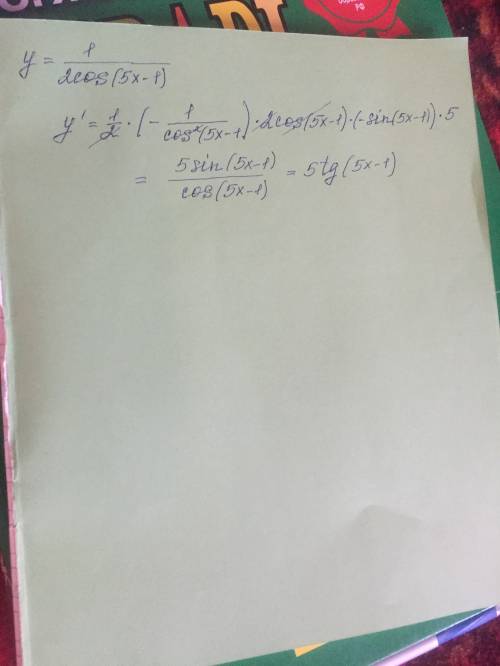 y = 1/(2cos(5x-1))
y' = 1/2 · (- 1/(cos²(5x-1)) · 2cos(5x-1) · (-sin(5x-1)) · 5
= 5sin(5x-1)/cos(5x-1) = 5tg(5x-1)